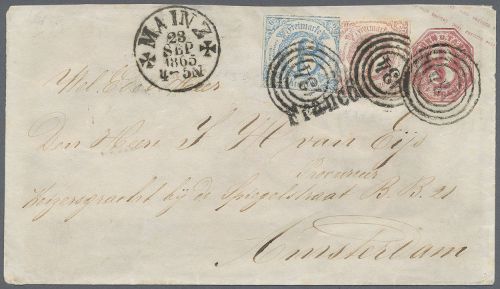 MAINZ
23
SEP
1865
4-5N
Freimarke
Freimarke
134
134
134
Franco
Wel Edele Heer
Den Heere J H van Eijs
Procureur
Keizersgracht bij de Spiegelstraat B.B. 21
Amsterdam